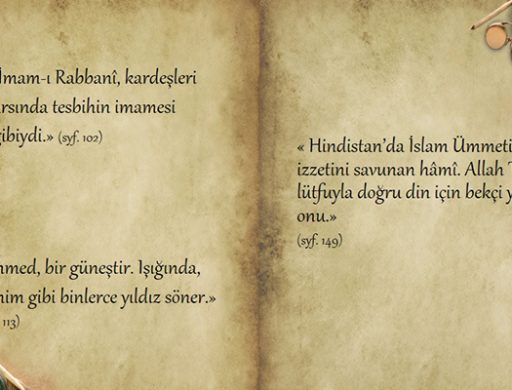 İmam-ı Rabbanî, kardeşleri
arsında tesbihin imamesi
gibiydi.» (syf. 102)
hmed, bir güneştir. Işığında,
nim gibi binlerce yıldız söner.»
113)
« Hindistan’da İslam Ümmeti
izzetini savunan hâmî. Allah T
lütfuyla doğru din için bekçi y
onu.»
(syf. 149)